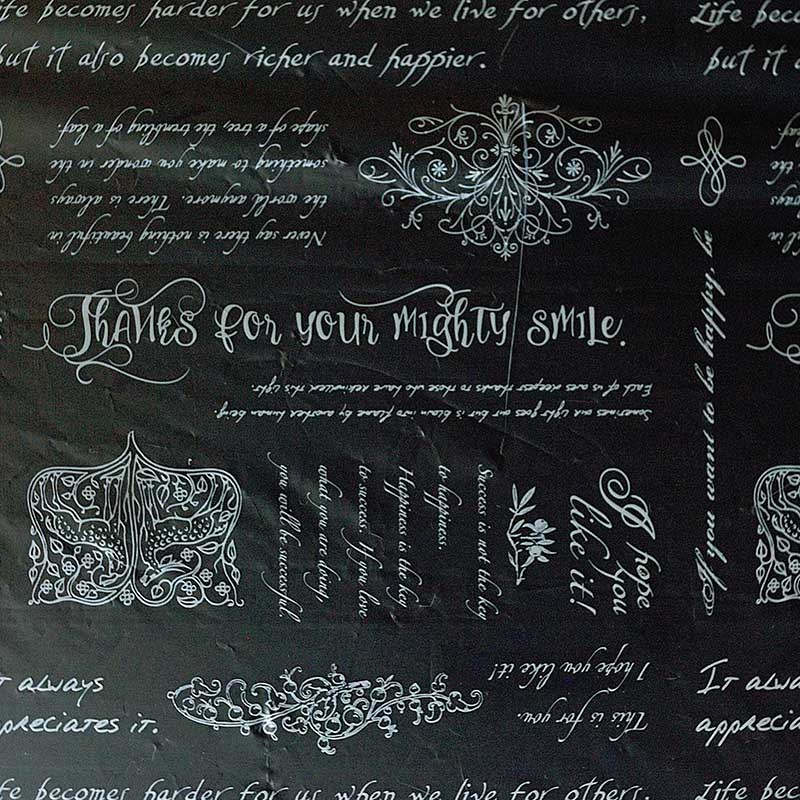 ife becomes harder for us when we live for others,
but it also becomes richer and happier.
Life bec
but it a
Never say there is nothing beautiful in
the world anymore. There is always
something to make you wonder in the
shape of a tree, the trembling of a leaf.
Thanks for your mighty smile.
Sometimes our light goes out but is blown into flame by another human being.
Each of us owes deepest thanks to those who have rekindled this light.
If you want to be happy, be
I hope
you
like it!
Success is not the key
to happiness.
Happiness is the key
to success. If you love
what you are doing,
you will be successful.
This is for you.
I hope you like it!
T always
ppreciates it.
It alwa
apprecia
ife becomes harder for us when we live for others,
Life bec